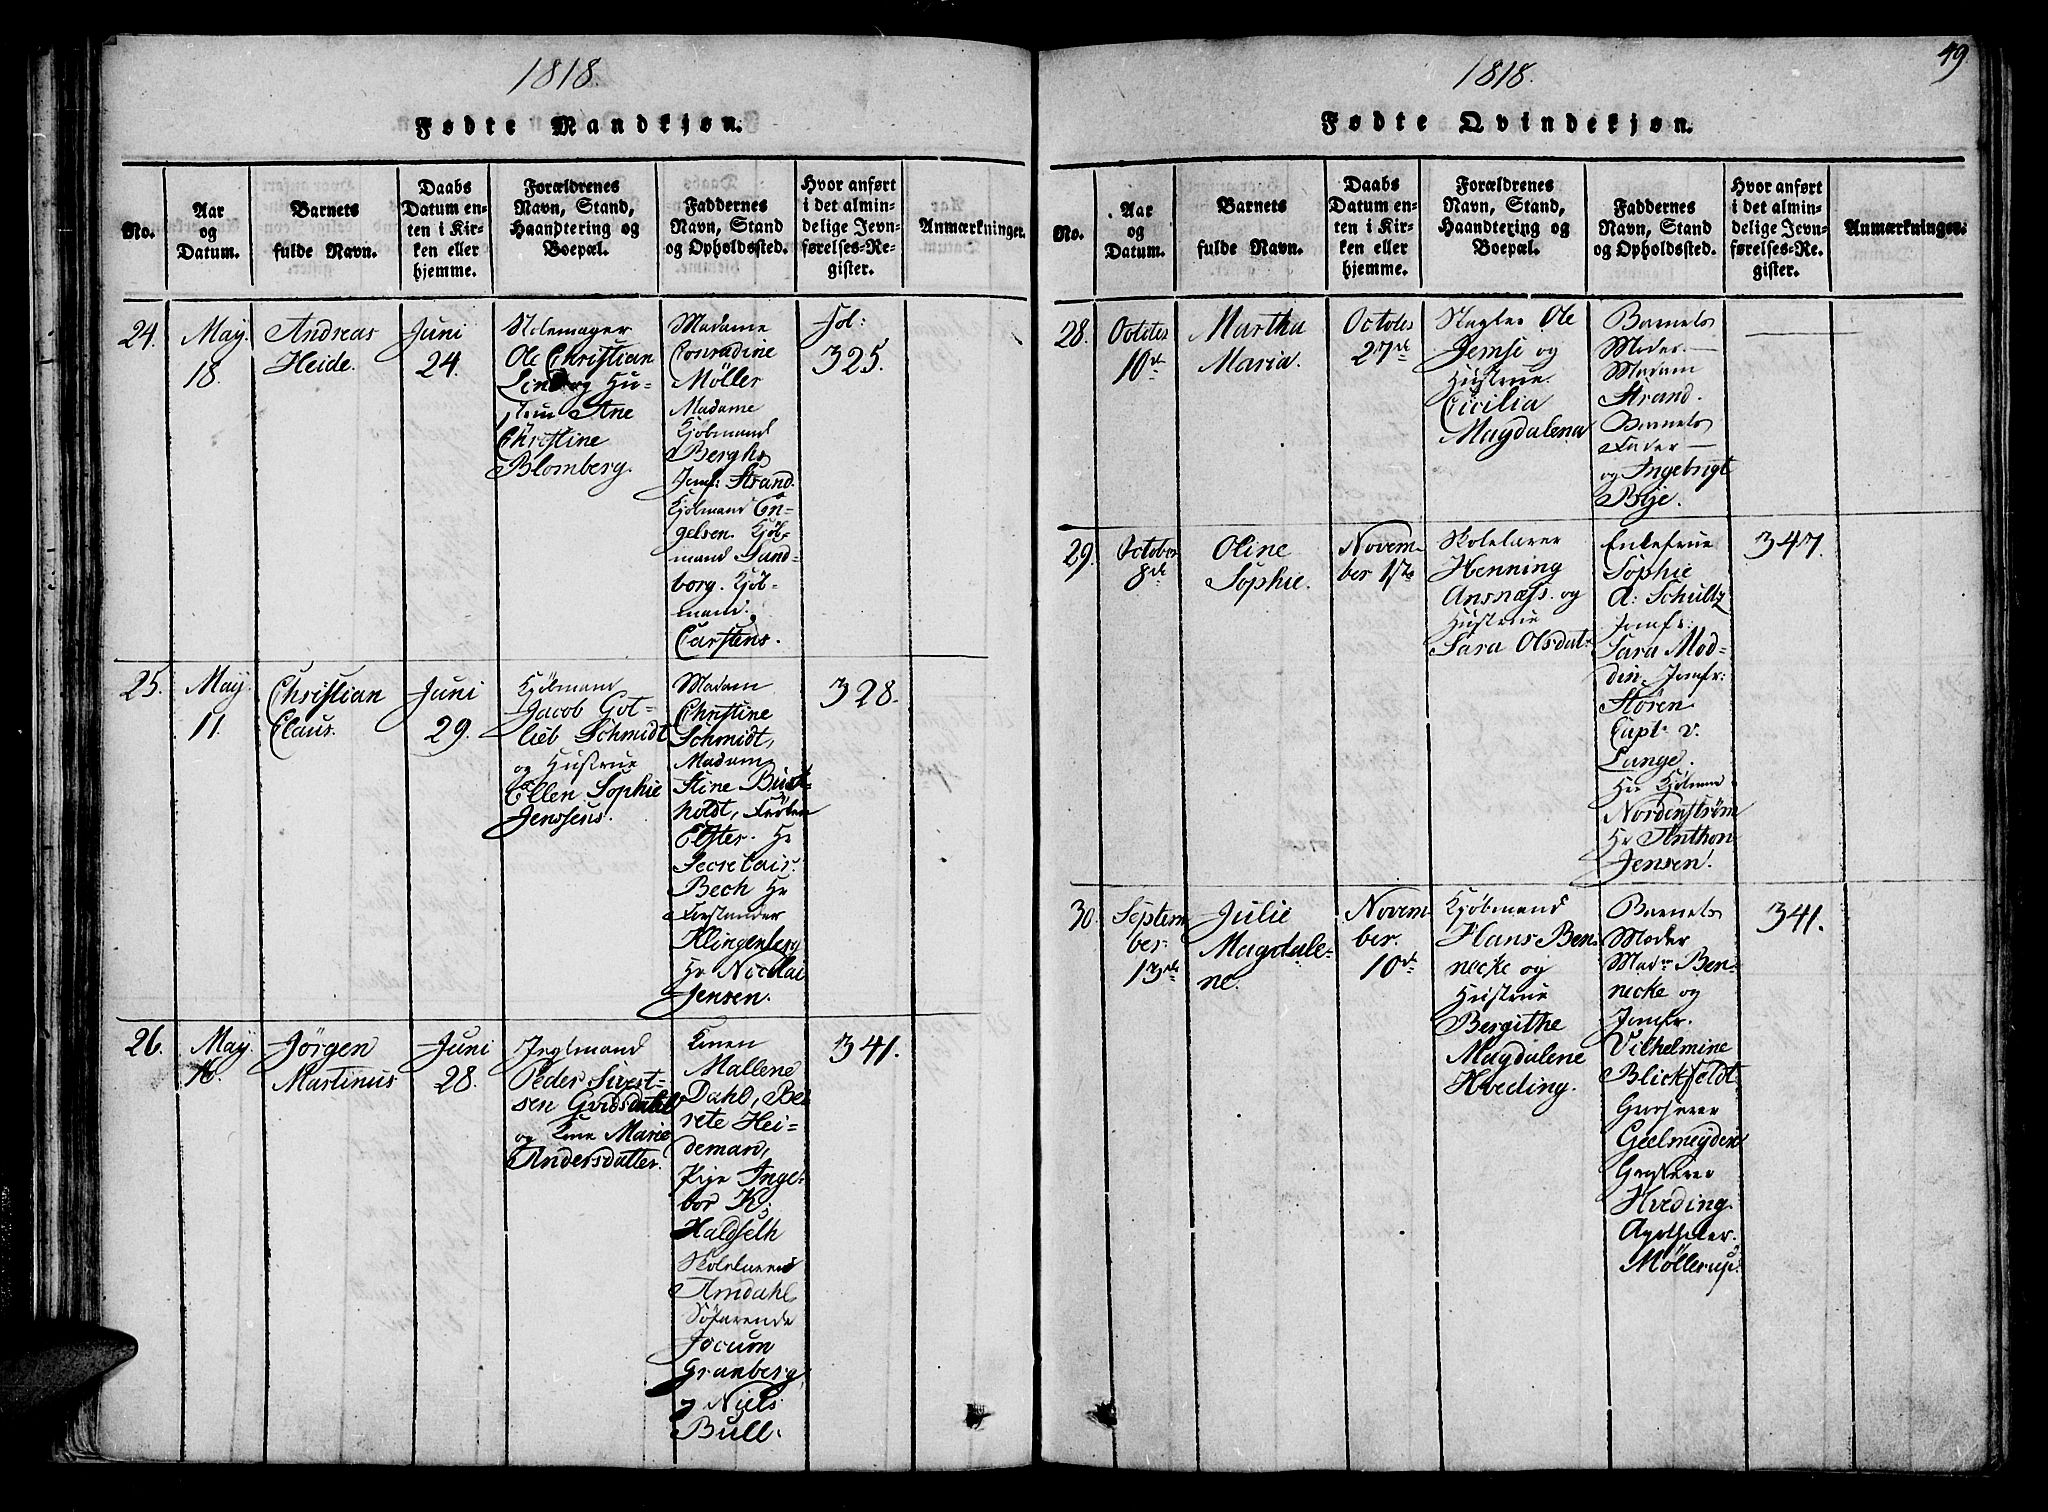 1818.
Fødte Mandkjøn.
No.
Aar
og
Datum.
Barnets
fulde Navn.
Daabs
Datum en-
ten i Kir-
ken eller
hjemme.
Forældrenes
Navn, Stand,
Haandtering og
Boepæl.
Faddernes
Navn, Stand
og Opholdssted.
Hvor anført
i det almin-
delige Jevn-
førelses-Re-
gister.
Anmærkninger.
24.
May
18.
Andreas
Heide.
Juni
24.
Ole Christian
Hu-
strue Ane
Christine
Blomberg.
Madame
Conradine
Møller
Madame
Kjøbmand
Berghs
Jomf: Strand.
Kjøbmand En-
gelsen. Kjøb-
mand Sund-
borg. Kjøb-
mand.
Carstens.
Fol:
325.
25.
May
11.
Christian
Claus.
Juni
29.
Kjøbmand
Jacob Got-
lieb Schmidt
og Hustrue
Ellen Sophie
Jenssens.
Madam
Christine
Schmidt,
Madam
Stine Buck-
holdt, Frøken
Elster. Hr
Secretair
Bech Hr
Forstander
Klingenberg
Hr Nicolai
Jensen.
328.
26.
May
16.
Jørgen
Martinus
Juni
28.
Peder Sivert-
sen
og Kone Marie
Andersdatter.
Konen
Mallene
Dahl, Be-
rete Hei-
deman,
Pige Inge-
bor K.
Haldseth
Skolelærer
Amdahl
Søfarende
Jocum
Granberg,
og Niels
Bull.
341.
49
1818.
Fødte Qvindekjøn.
No.
Aar
og
Datum.
Barnets
fulde Navn.
Daabs
Datum en-
ten i Kir-
ken eller
hjemme.
Forældrenes
Navn, Stand,
Haandtering og
Boepæl.
Faddernes
Navn, Stand
og Opholdssted.
Hvor anført
i det almin-
delige Jevn-
førelses-Re-
gister.
Anmærkninger.
28.
October
10de
Martha
Maria.
October
27de
Slagter Ole
Jemse og
Hustrue.
Cicilia
Magdalena
Barnets
Moder.
Madam
Strand.
Barnets
Fader
og Ingebrigt
Bye.
29.
October
8de
Oline
Sophie.
Novem-
ber 1ste
Skolelærer
Henning
Ansnæss. og
Hustrue
Sara Olsdat.
Enkefrue
Sophie
A: Schultz
Jomfr:
Sara Mod-
din, Jomfr:
Støren
Capt: v.
Lange.
Hr Kjøbmand
Nordenstrøm
Hr Anthon
Jensen.
347.
30.
Septem
ber.
13de
Julie
Magdale-
ne.
Novem-
ber.
10de
Kjøbmand
Hans Ben-
necke og
Hustrue
Bergithe
Magdalene
Hveding.
Barnets
Moder
Madm Ben-
necke og
Jomfr.
Vilhelmine
Blickfeldt
Grosserer
Geelmeyden
Grosserer
Hveding.
Apotheker.
Møllerup.
341.